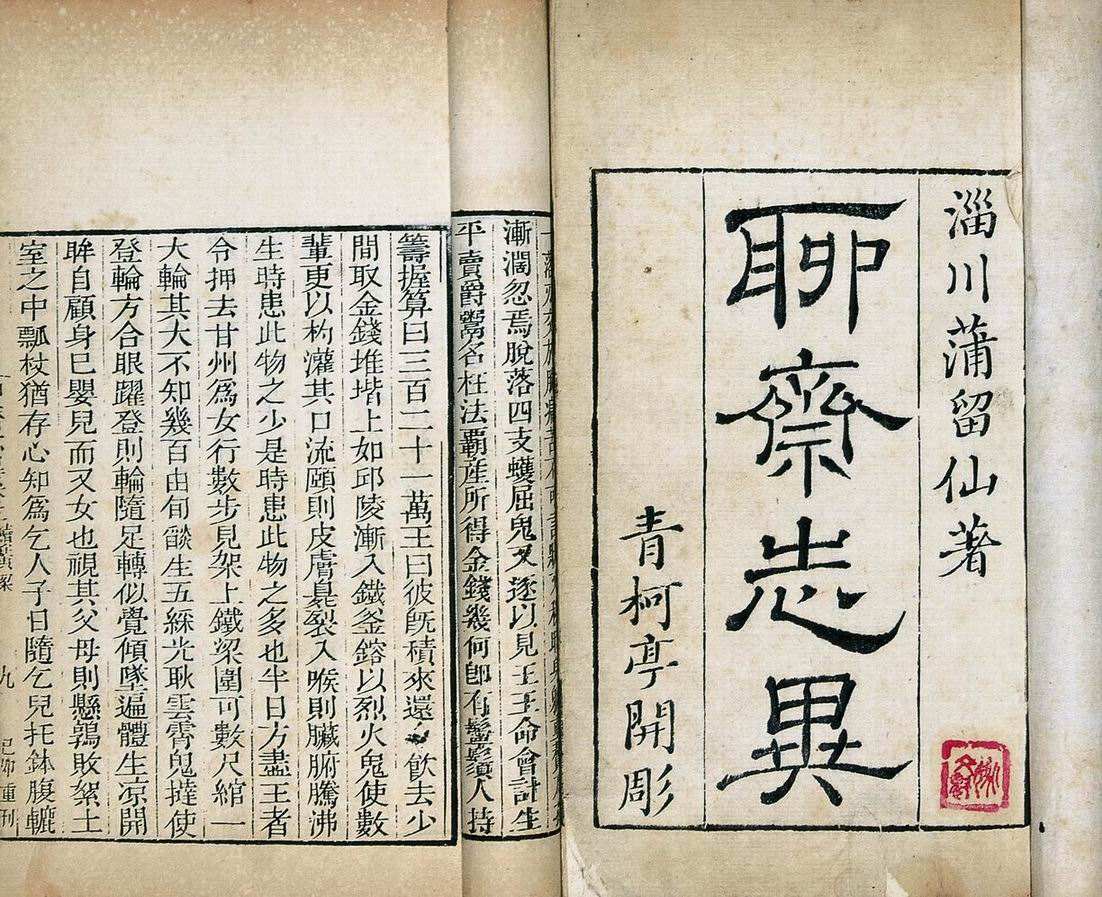 淄川蒲留仙著
聊齋志異
青柯亭開彫
漸潤忽焉脫落四支蠖屈鬼又逐以見王王命會計生
平賣爵鬻名枉法霸產所得金錢幾何卽有鬈鬚人持
籌握算曰三百二十一萬王曰彼旣積來還飲去少
間取金錢堆堦上如邱陵漸入鐵釜鎔以烈火鬼使數
輩更以杓灌其口流頤則皮膚臭裂入喉則臟腑騰沸
生時患此物之少是時患此物之多也半日方盡王者
令押去甘州爲女行數步見架上鐵梁圍可數尺綰一
大輪其大不知幾百由旬燄生五綵光耿雲霄鬼撻使
登輪方合眼躍登則輪隨足轉似覺傾墜遍體生涼開
眸自顧身已嬰兒而又女也視其父母則懸鶉敗絮土
室之中瓢杖猶存心知爲乞人子日隨乞兒托鉢腹轆
九
重刊